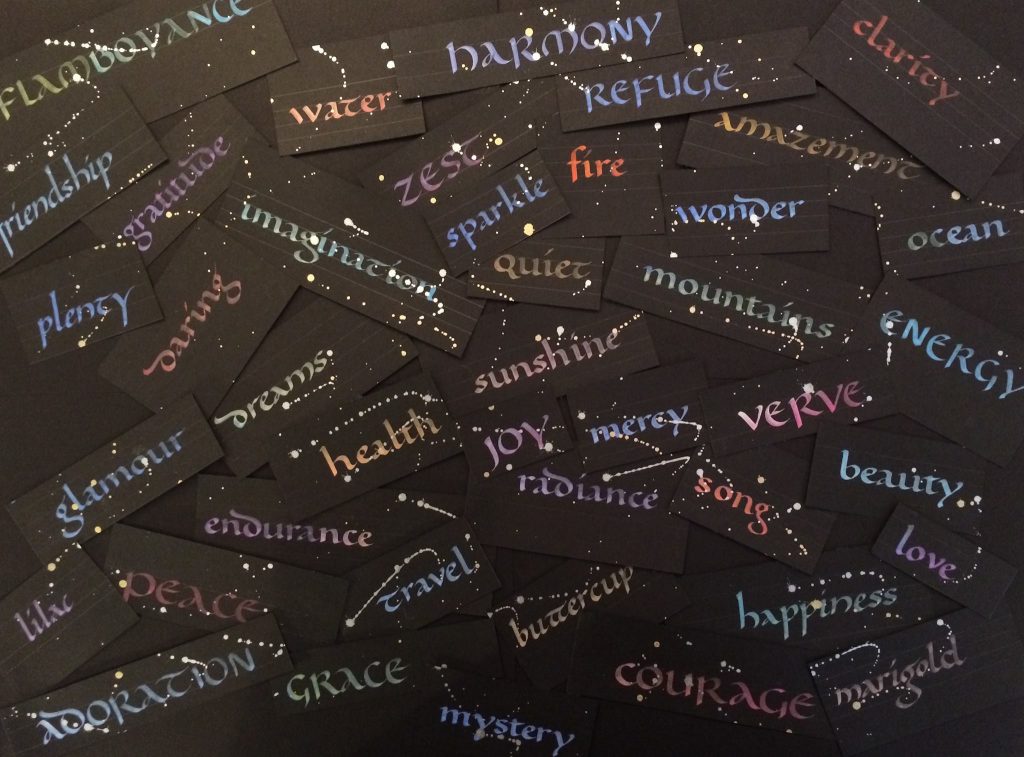 FLAMBOYANCE
HARMONY
clarity
water
REFUGE
amazement
friendship
gratitude
ZEST
fire
sparkle
wonder
ocean
imagination
quiet
plenty
daring
mountains
ENERGY
dreams
sunshine
health
JOY
mercy
VERVE
glamour
radiance
song
beauty
endurance
love
lilac
PEACE
travel
buttercup
happiness
ADORATION
GRACE
COURAGE
marigold
mystery